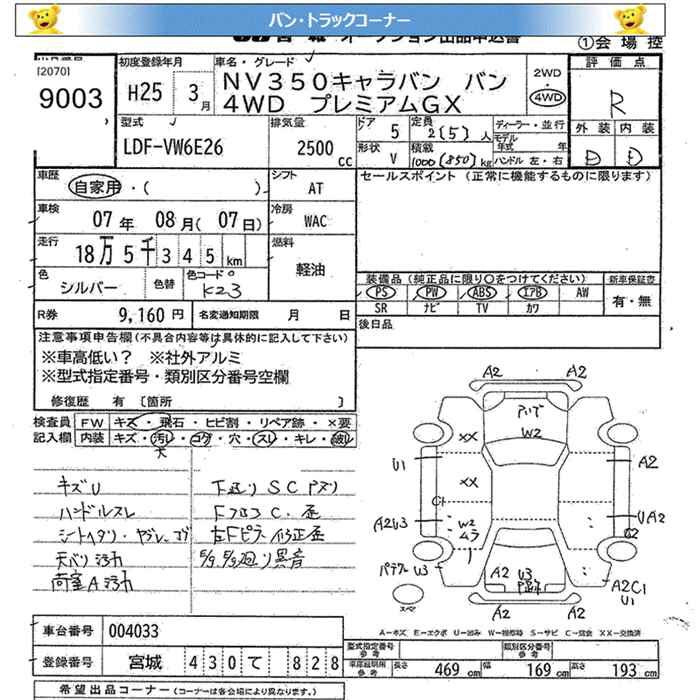 バン・トラックコーナー
オークション出品申込書
①会場控
12070)
9003
初度登録年月
H25 3月
車名・グレード
NV350キャラバン バン
4WD プレミアムGX
2WD
4WD
評価点
R
外装 内装
D D
型式
LDF-VW6E26
排気量
2500cc
ドア 5
定員 2(5)人
形状 V
積載 1000(850)kg
ディーラー・並行
モデル年式 年
ハンドル 左・右
車歴
自家用・( )
シフト AT
セールスポイント (正常に機能するものに限ります)
車検
07年 08月(07日)
冷房 WAC
走行
18万5千345km
燃料 軽油
色 シルバー
色替
色コード K23
装備品(純正品に限り○をつけてください)
新車保証書
PS PW ABS エアB AW
有・無
SR ナビ TV カワ
R券 9,160円
名変通知期限 月 日
後日品
注意事項申告欄(不具合内容等は具体的に記入して下さい)
※車高低い? ※社外アルミ
※型式指定番号・類別区分番号空欄
修復歴 有 [箇所 ]
検査員記入欄
FW キズ・飛石・ヒビ割・リペア跡・×要
内装 キズ・汚れ・コゲ・穴・スレ・キレ・破レ
大
キズU
ハンドルスレ
シートヘタリ・ヤブレ、コゲ
天バリ汚れ
荷室A汚れ
下廻りSCアリ
FフロアC.歪
左Fピラー修正歪
異音
A2 A2
アバタ
W2
XX
U1
A2
XX
C1
A2U3
W2
ムラ
UA2
C2
U3
A2 U3
凹跡
A2C1
U1
A2 A2
スペア
A-キズ E-エクボ U-凹み W-補修跡 S-サビ C-腐食 XX-交換済
車台番号 004033
登録番号 宮城 430 て 828
型式指定番号 参考
類別区分番号 参考
車庫証明用 参考
長さ 469 cm 幅 169 cm 高さ 193 cm
希望出品コーナー(コーナーは各会場により異なります。)